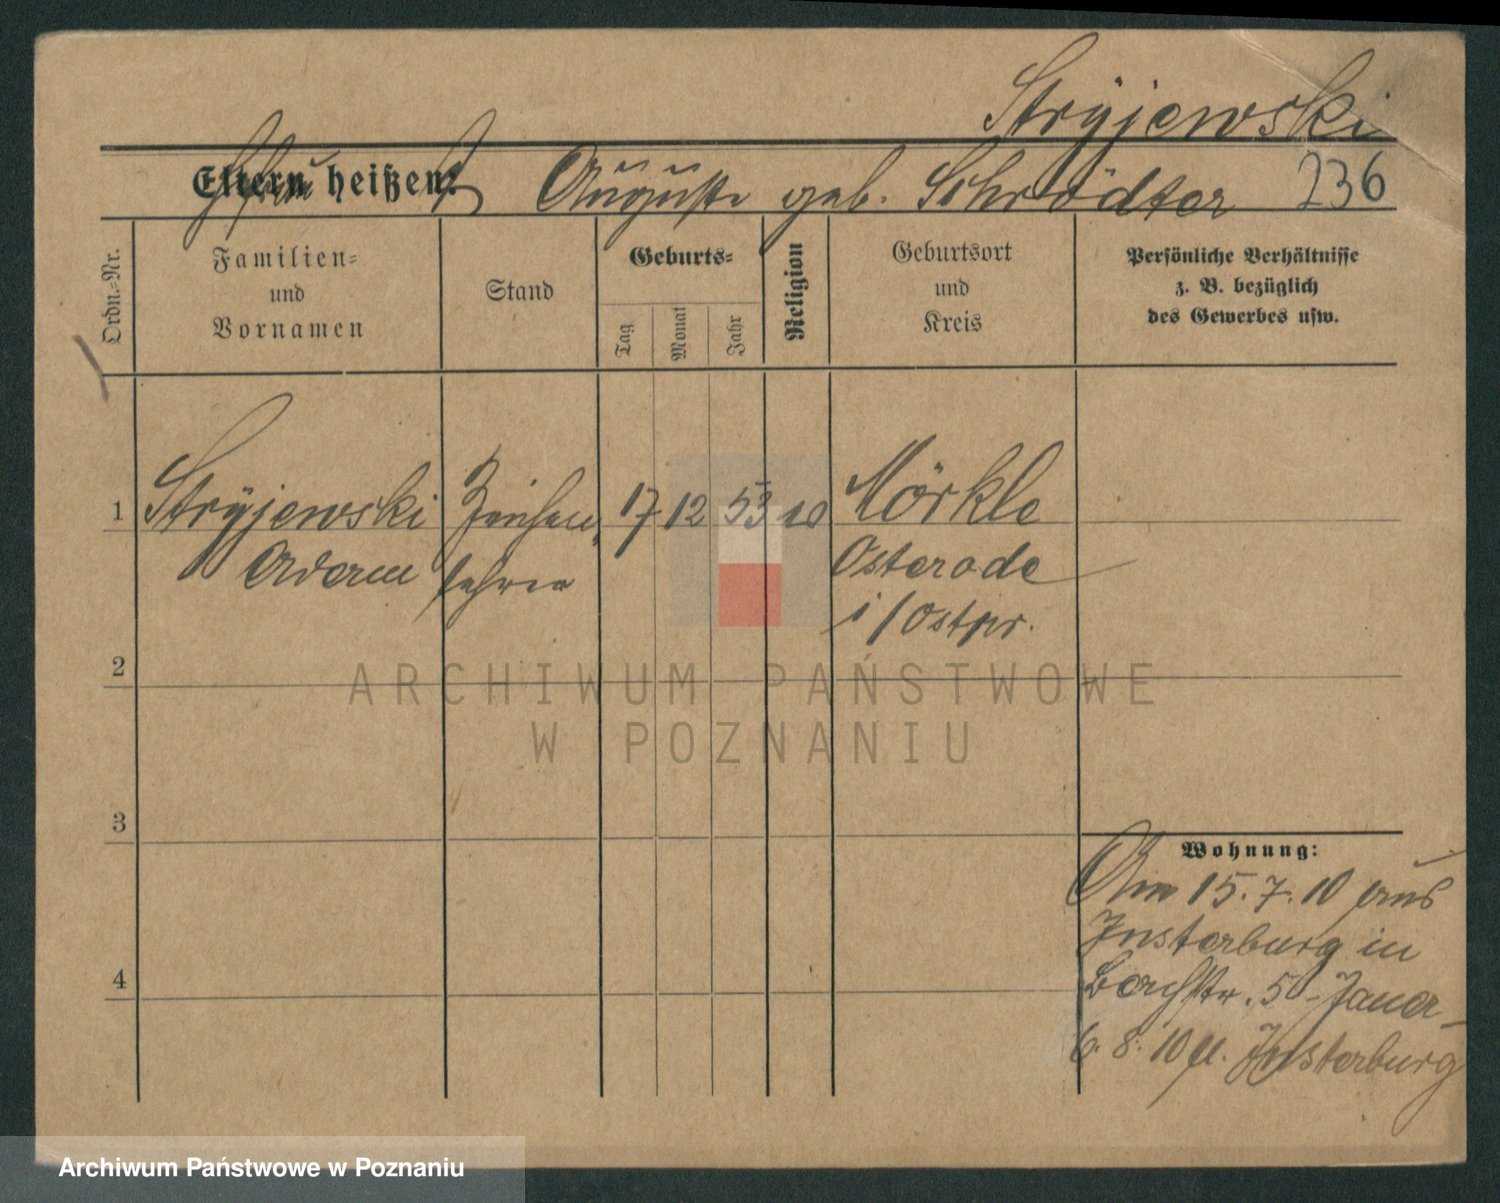 Stryjewski
Eltern heißen: Auguste geb. Schrödter 236
Ordn.=Nr.
Familien=
und
Vornamen
Stand
Geburts=
Tag
Monat
Jahr
Religion
Geburtsort
und
Kreis
Persönliche Verhältnisse
z. B. bezüglich
des Gewerbes usw.
1 Stryjewski Zeichen 17 12 53 Mörkle
Adam lehrer Osterode
i/Ostpr.
2
ARCHIWUM PAŃSTWOWE
W POZNANIU
3
Wohnung:
Am 15.7.10 aus
Insterburg in
5 - Jauer
4
6. 8. 10 n. Insterburg
Archiwum Państwowe w Poznaniu